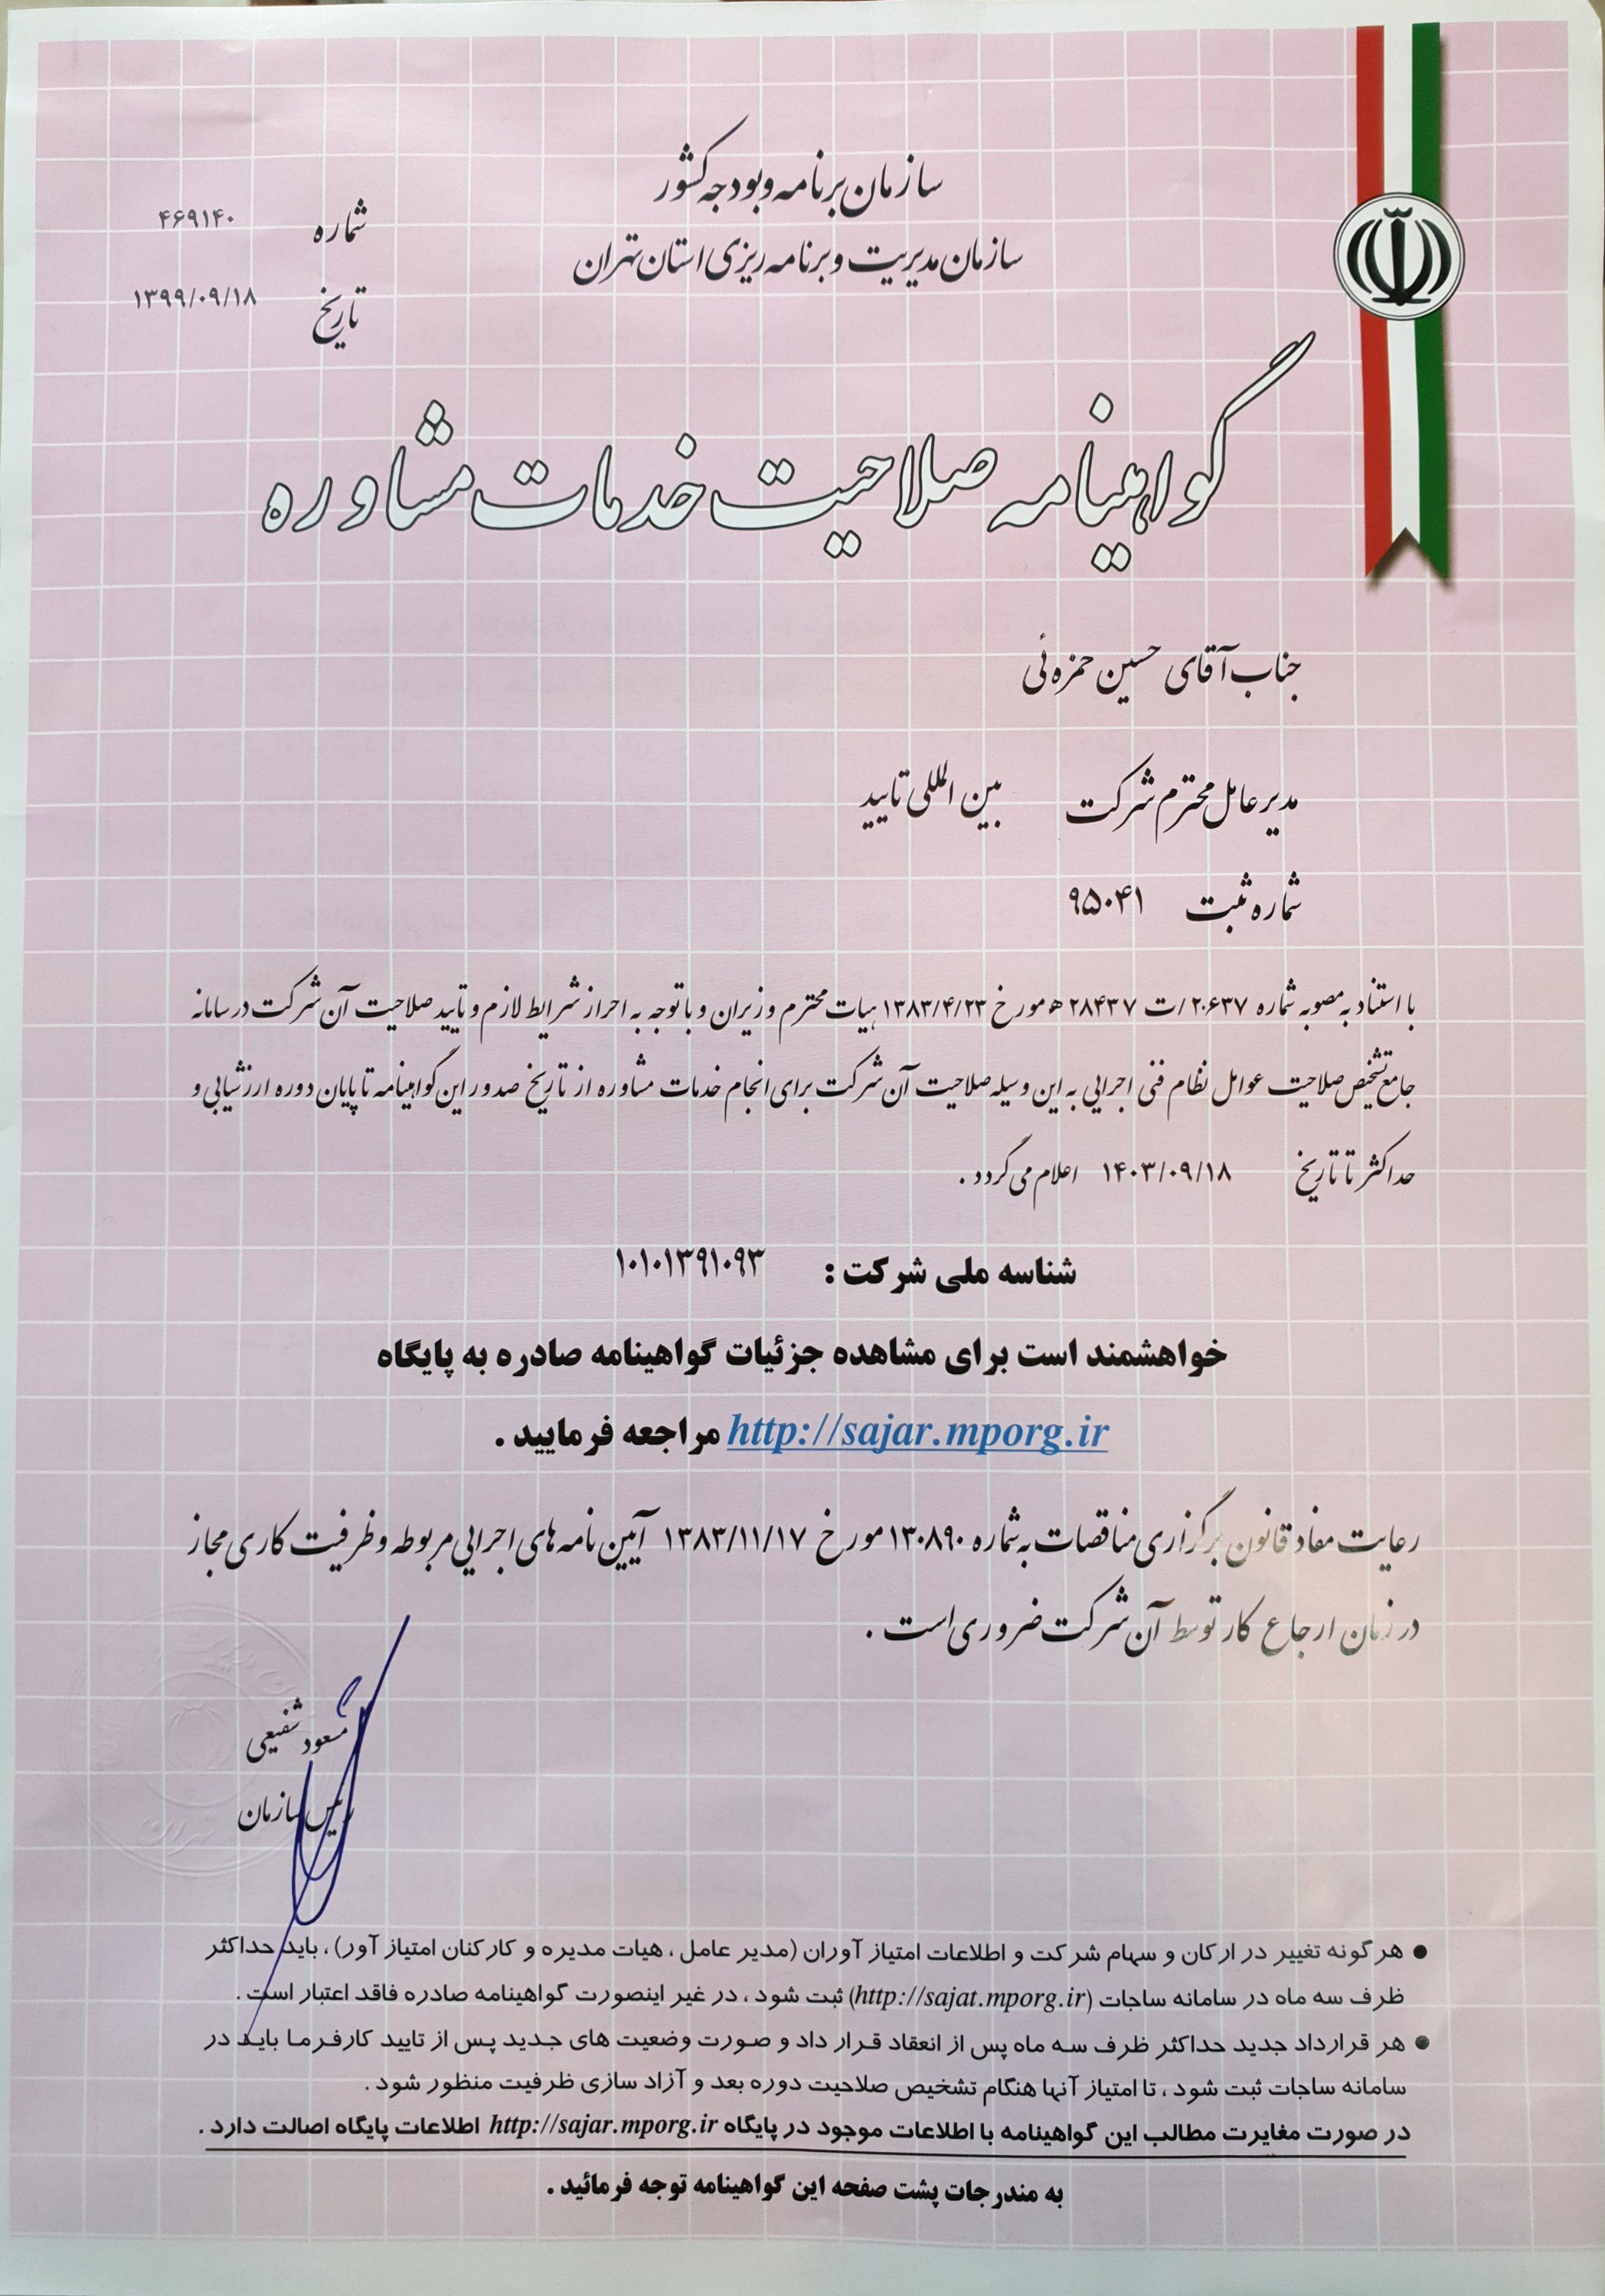 سازمان برنامه و بودجه کشور
سازمان مدیریت و برنامه ریزی استان تهران
شماره ۴۶۹۱۴۰
تاریخ ۱۳۹۹/۰۹/۱۸
گواهینامه صلاحیت خدمات مشاوره
جناب آقای حسین حمزه ئی
مدیر عامل محترم شرکت بین المللی تایید
شماره ثبت ۹۵۰۴۱
با استناد به مصوبه شماره ۲۰۶۳۷/ت ۲۸۴۳۷ ه مورخ ۱۳۸۳/۴/۲۳ هیات محترم وزیران و با توجه به احراز شرایط لازم و تایید صلاحیت آن شرکت در سامانه
جامع تشخیص صلاحیت عوامل نظام فنی اجرایی به این وسیله صلاحیت آن شرکت برای انجام خدمات مشاوره از تاریخ صدور این گواهینامه تا پایان دوره ارزشیابی و
حداکثر تا تاریخ ۱۴۰۳/۰۹/۱۸ اعلام می گردد .
شناسه ملی شرکت : ۱۰۱۰۱۳۹۱۰۹۳
خواهشمند است برای مشاهده جزئیات گواهینامه صادره به پایگاه
http://sajar.mporg.ir مراجعه فرمایید .
رعایت مفاد قانون برگزاری مناقصات به شماره ۱۳۰۸۹۰ مورخ ۱۳۸۳/۱۱/۱۷ آیین نامه های اجرایی مربوطه و ظرفیت کاری مجاز
در زمان ارجاع کار توسط آن شرکت ضروری است .
مسعود شفیعی
رئیس سازمان
● هر گونه تغییر در ارکان و سهام شرکت و اطلاعات امتیاز آوران (مدیر عامل ، هیات مدیره و کارکنان امتیاز آور) ، باید حداکثر
ظرف سه ماه در سامانه ساجات (http://sajat.mporg.ir) ثبت شود ، در غیر اینصورت گواهینامه صادره فاقد اعتبار است .
● هر قرارداد جدید حداکثر ظرف سه ماه پس از انعقاد قرار داد و صورت وضعیت های جدید پس از تایید کارفرما باید در
سامانه ساجات ثبت شود ، تا امتیاز آنها هنگام تشخیص صلاحیت دوره بعد و آزاد سازی ظرفیت منظور شود .
در صورت مغایرت مطالب این گواهینامه با اطلاعات موجود در پایگاه http://sajar.mporg.ir اطلاعات پایگاه اصالت دارد .
به مندرجات پشت صفحه این گواهینامه توجه فرمائید .